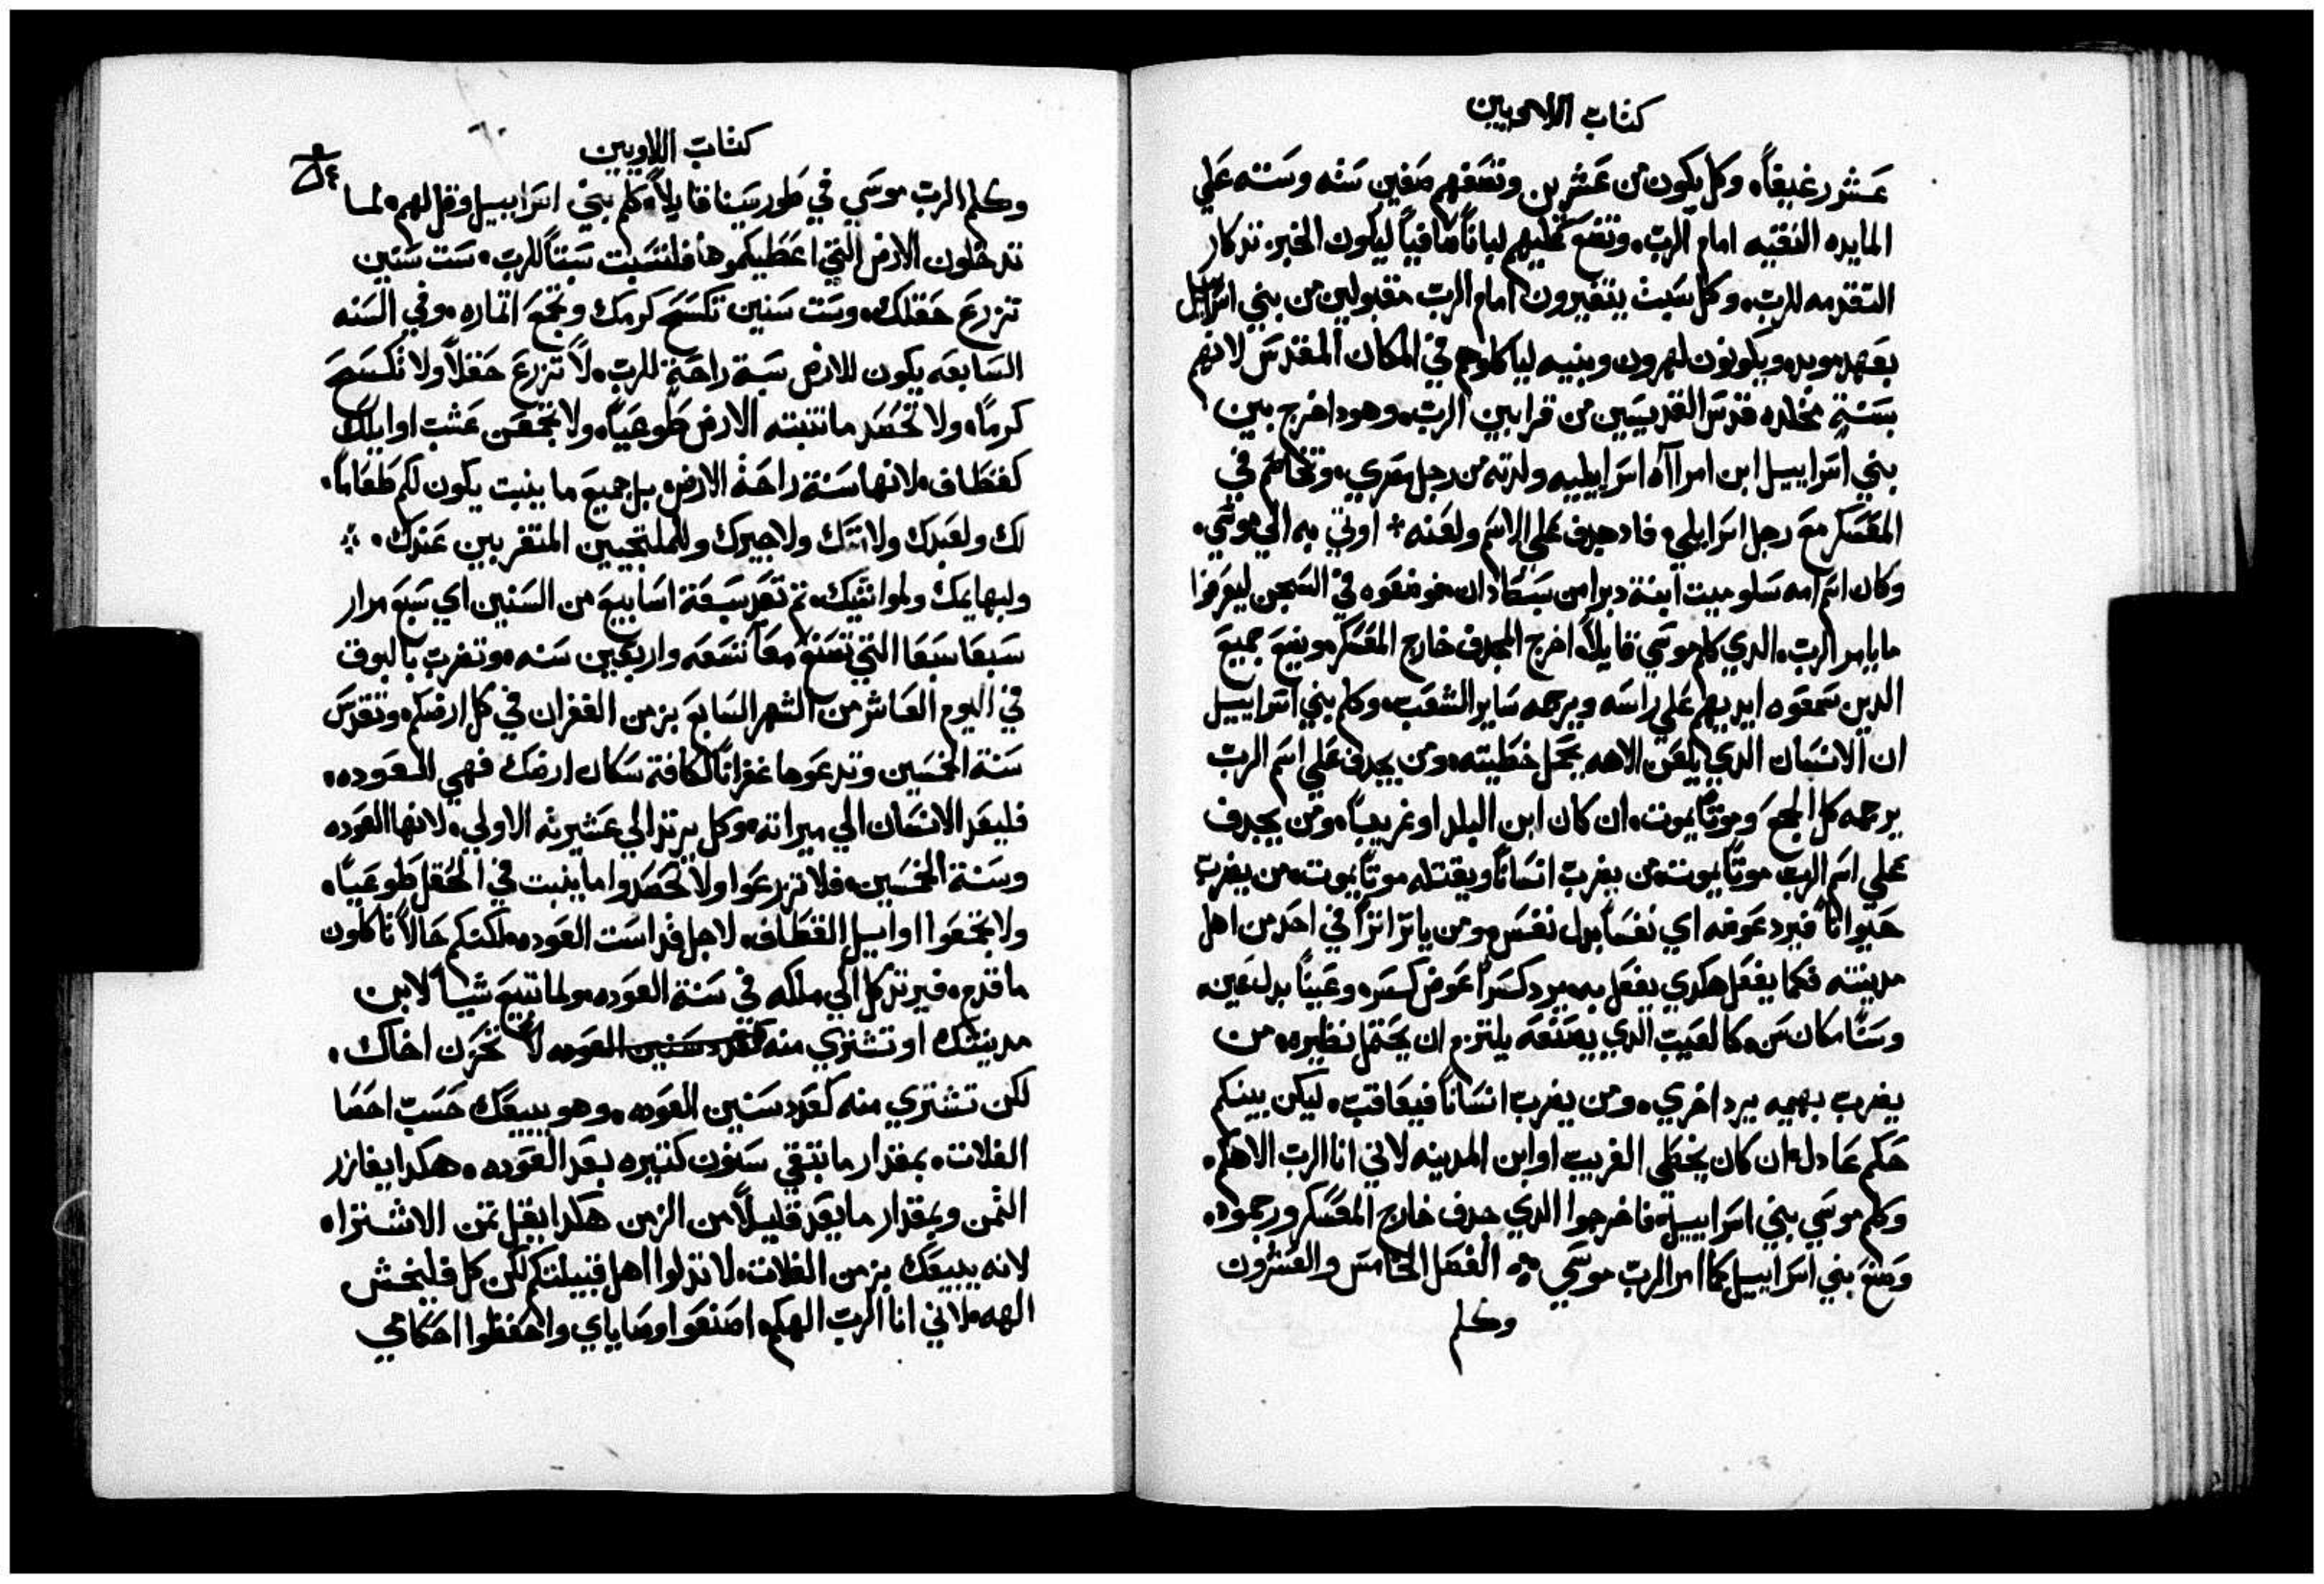 كتاب اللاويين
عشر رغيفاً، وكل يكون من عشرين وتضعهم صفين سته وسته علي
المايده النقيه امام الرب، وتضع عليهم لباناً صافياً ليكون الخبز تدكار
التقدمه للرب، وكل سبت يتغيرون امام الرب مقبولين من بني اسراييل
بعهد موبد، ويكونون لهرون وبنيه لياكلوهم في المكان المقدس لانهم
بسنةٍ مخلده قدس القديسين من قرابين الرب، وهودا خرج بين
بني اسراييل ابن امراآه اسراييليه ولدته من رجل مصري، وتخاصم في
المعسكر مع رجل اسراييلي، فاد جدف علي الاسم ولعنه * اوتي به الي موسي،
وكان اسم امه سلوميت ابنة دبرا من سبط دان، فوضعوه في السجن ليعرفوا
ما يامر الرب، الدي كلم موسي قايلاً، اخرج المجدف خارج المعسكر، ويضع جميع
الدين سمعوه ايديهم علي راسه ويرجمه ساير الشعب، وكلم بني اسراييل
ان الانسان الدي يلعن الاهه يحمل خطيته، ومن يجدف علي اسم الرب
يرجمه كل الجمع وموتاً يموت، ان كان ابن البلد او غريباً، ومن يجدف
علي اسم الرب موتاً يموت، من يضرب انساناً ويقتله موتاً يموت، من يضرب
حيواناً فيرد عوضه اي نفساً بدل نفس، ومن ياثر اثراً في احد من اهل
مدينته فكما يفعل هكدي يفعل به، يرد كسراً عوض كسر، وعيناً بدل عين،
وسناً مكان سن، كالعيب الدي يصنعه يلتزم ان يحتمل نظيره، من
يضرب بهيمه يرد اخري، ومن يضرب انساناً فيعاقب، ليكن بينكم
حكم عادل، ان كان يخطي الغريب او ابن المدينه لاني انا الرب الاهكم،
وكلم موسي بني اسراييل، فاخرجوا الدي جدف خارج المعسكر ورجموه،
وصنع بني اسراييل كما امر الرب موسي ۞ الفصل الخامس والعشرون
وكلم
كتاب اللاويين
وكلم الرب موسي في طور سينا قايلاً، كلم بني اسراييل وقل لهم، لما
تدخلون الارض التي اعطيكموها فلتسبت سبتاً للرب، ست سنين
تزرع حقلك، وست سنين تكسح كرمك وتجمع اتماره، وفي السنه
السابعه يكون للارض سبة راحةٍ للرب، لا تزرع حقلاً ولا تكسح
كرماً، ولا تحصد ما تنبته الارض طوعياً، ولا تجمعن عشب اوايلك
كقطاف، لانها سنة راحة الارض، بل جميع ما ينبت يكون لكم طعاماً،
لك ولعبدك ولامتك ولاجيرك وللملتجيين المتقربين عندك،
ولبهايمك ولمواشيك، تم تعد سبعة اسابيع من السنين اي سبع مرار
سبعا سبعا التي تصنع معاً تسعه واربعين سنه، وتضرب بالبوق
في اليوم العاشر من الشهر السابع بزمن الغفران في كل ارضكم، وتقدس
سنة الخمسين وتدعوها غفراناً لكافة سكان ارضك فهي العوده،
فليعد الانسان الي ميراته، وكل يرتد الي عشيرته الاولي، لانها العوده
وسنة الخمسين، فلا تزرعوا ولا تحصدوا ما ينبت في الحقل طوعياً،
ولا تجمعوا اوايل القطاف، لاجل قداست العوده، لكنكم حالاً تاكلون
ما قدم، فيرتد كل الي ملكه في سنة العوده، ولما تبيع شياً لابن
مدينتك او تشتري منه كعدد سنين العوده لا تحزن اخاك،
لكن تشتري منه كعدد سنين العوده، وهو يبيعك حسب احصا
الغلات، بمقدار ما تبقي سنون كتيره بعد العوده، هكدا يغازر
التمن وبمقدار ما يعد قليلاً من الزمن هكدا يقل تمن الاشترا،
لانه يبيعك بزمن الغلات، لا تدلوا اهل قبيلتكم لكن كل فليخش
الهه، لاني انا الرب الهكم، اصنعوا وصاياي واحفظوا احكامي